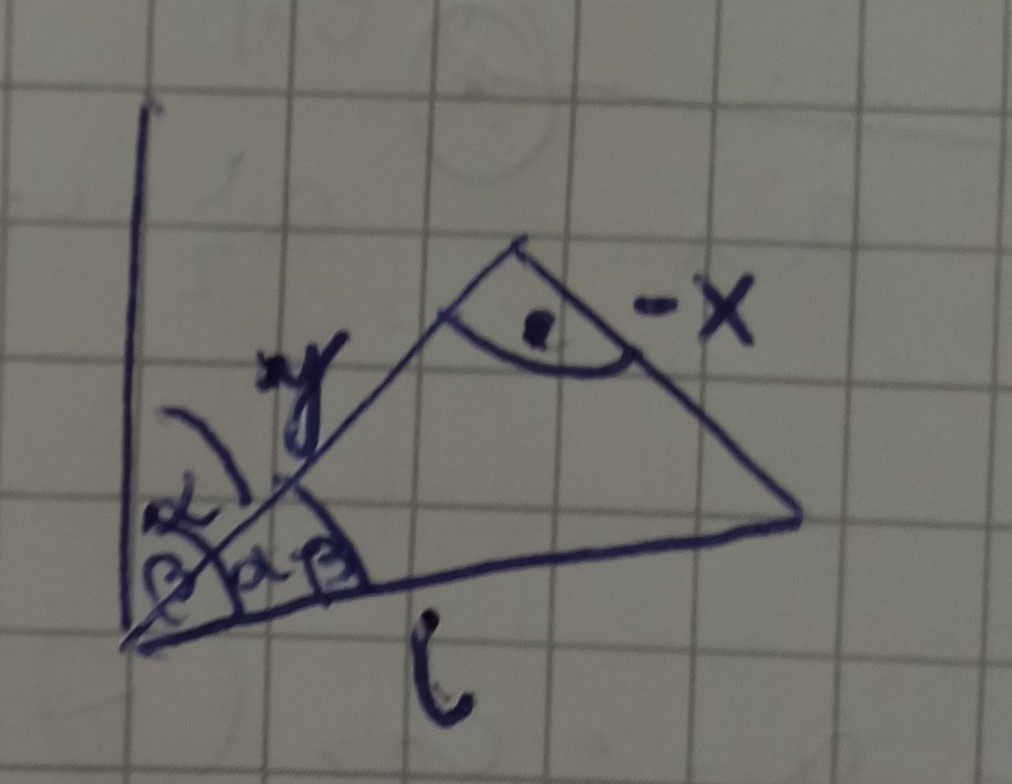 - x
y
α
β
α - β
l